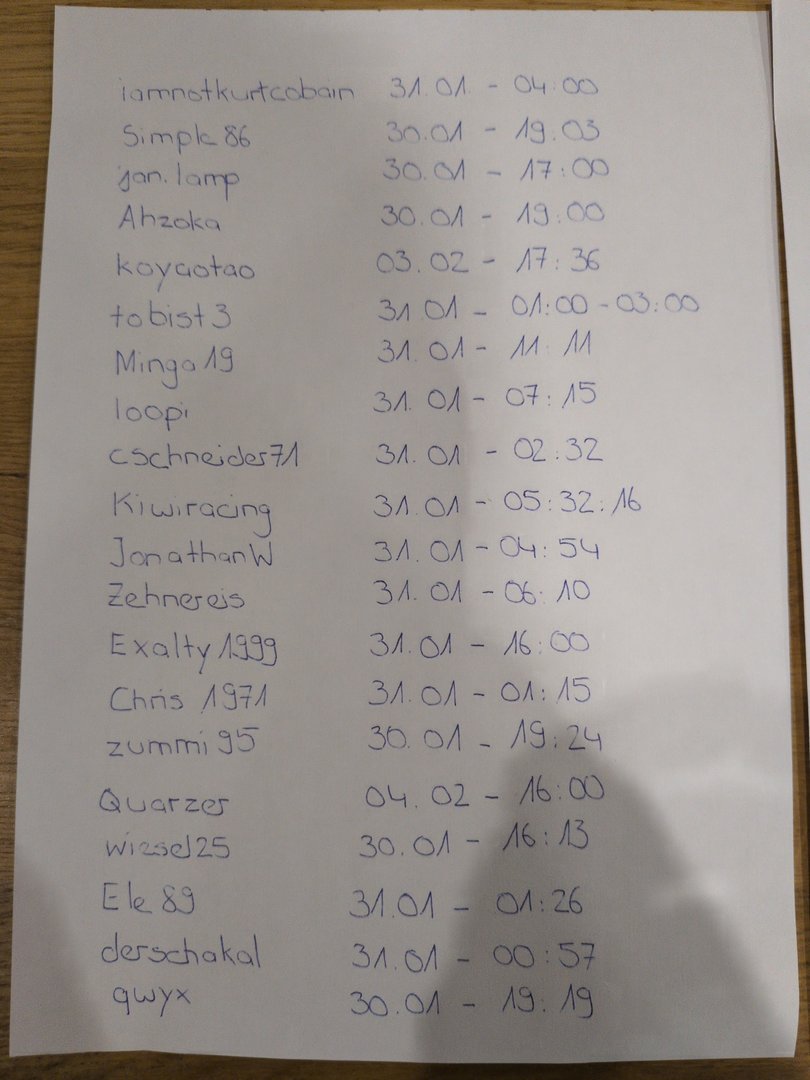 iamnotkurtcobain 31.01. - 04:00
Simple86 30.01 - 19.03
jan.lamp 30.01 - 17:00
Ahzoka 30.01 - 19:00
koyaotao 03.02 - 17:36
tobist3 31.01 - 01:00-03:00
Minga19 31.01 - 11:11
loopi 31.01 - 07:15
cschneider71 31.01 - 02:32
Kiwiracing 31.01 - 05:32:16
JonathanW 31.01 - 04:54
Zehnereis 31.01 - 06:10
Exalty1999 31.01 - 16:00
Chris 1971 31.01 - 01:15
zummi95 30.01 - 19:24
Quarzer 04.02 - 16:00
wiesel25 30.01 - 16:13
Ele89 31.01 - 01:26
derschakal 31.01 - 00:57
qwyx 30.01 - 19:19